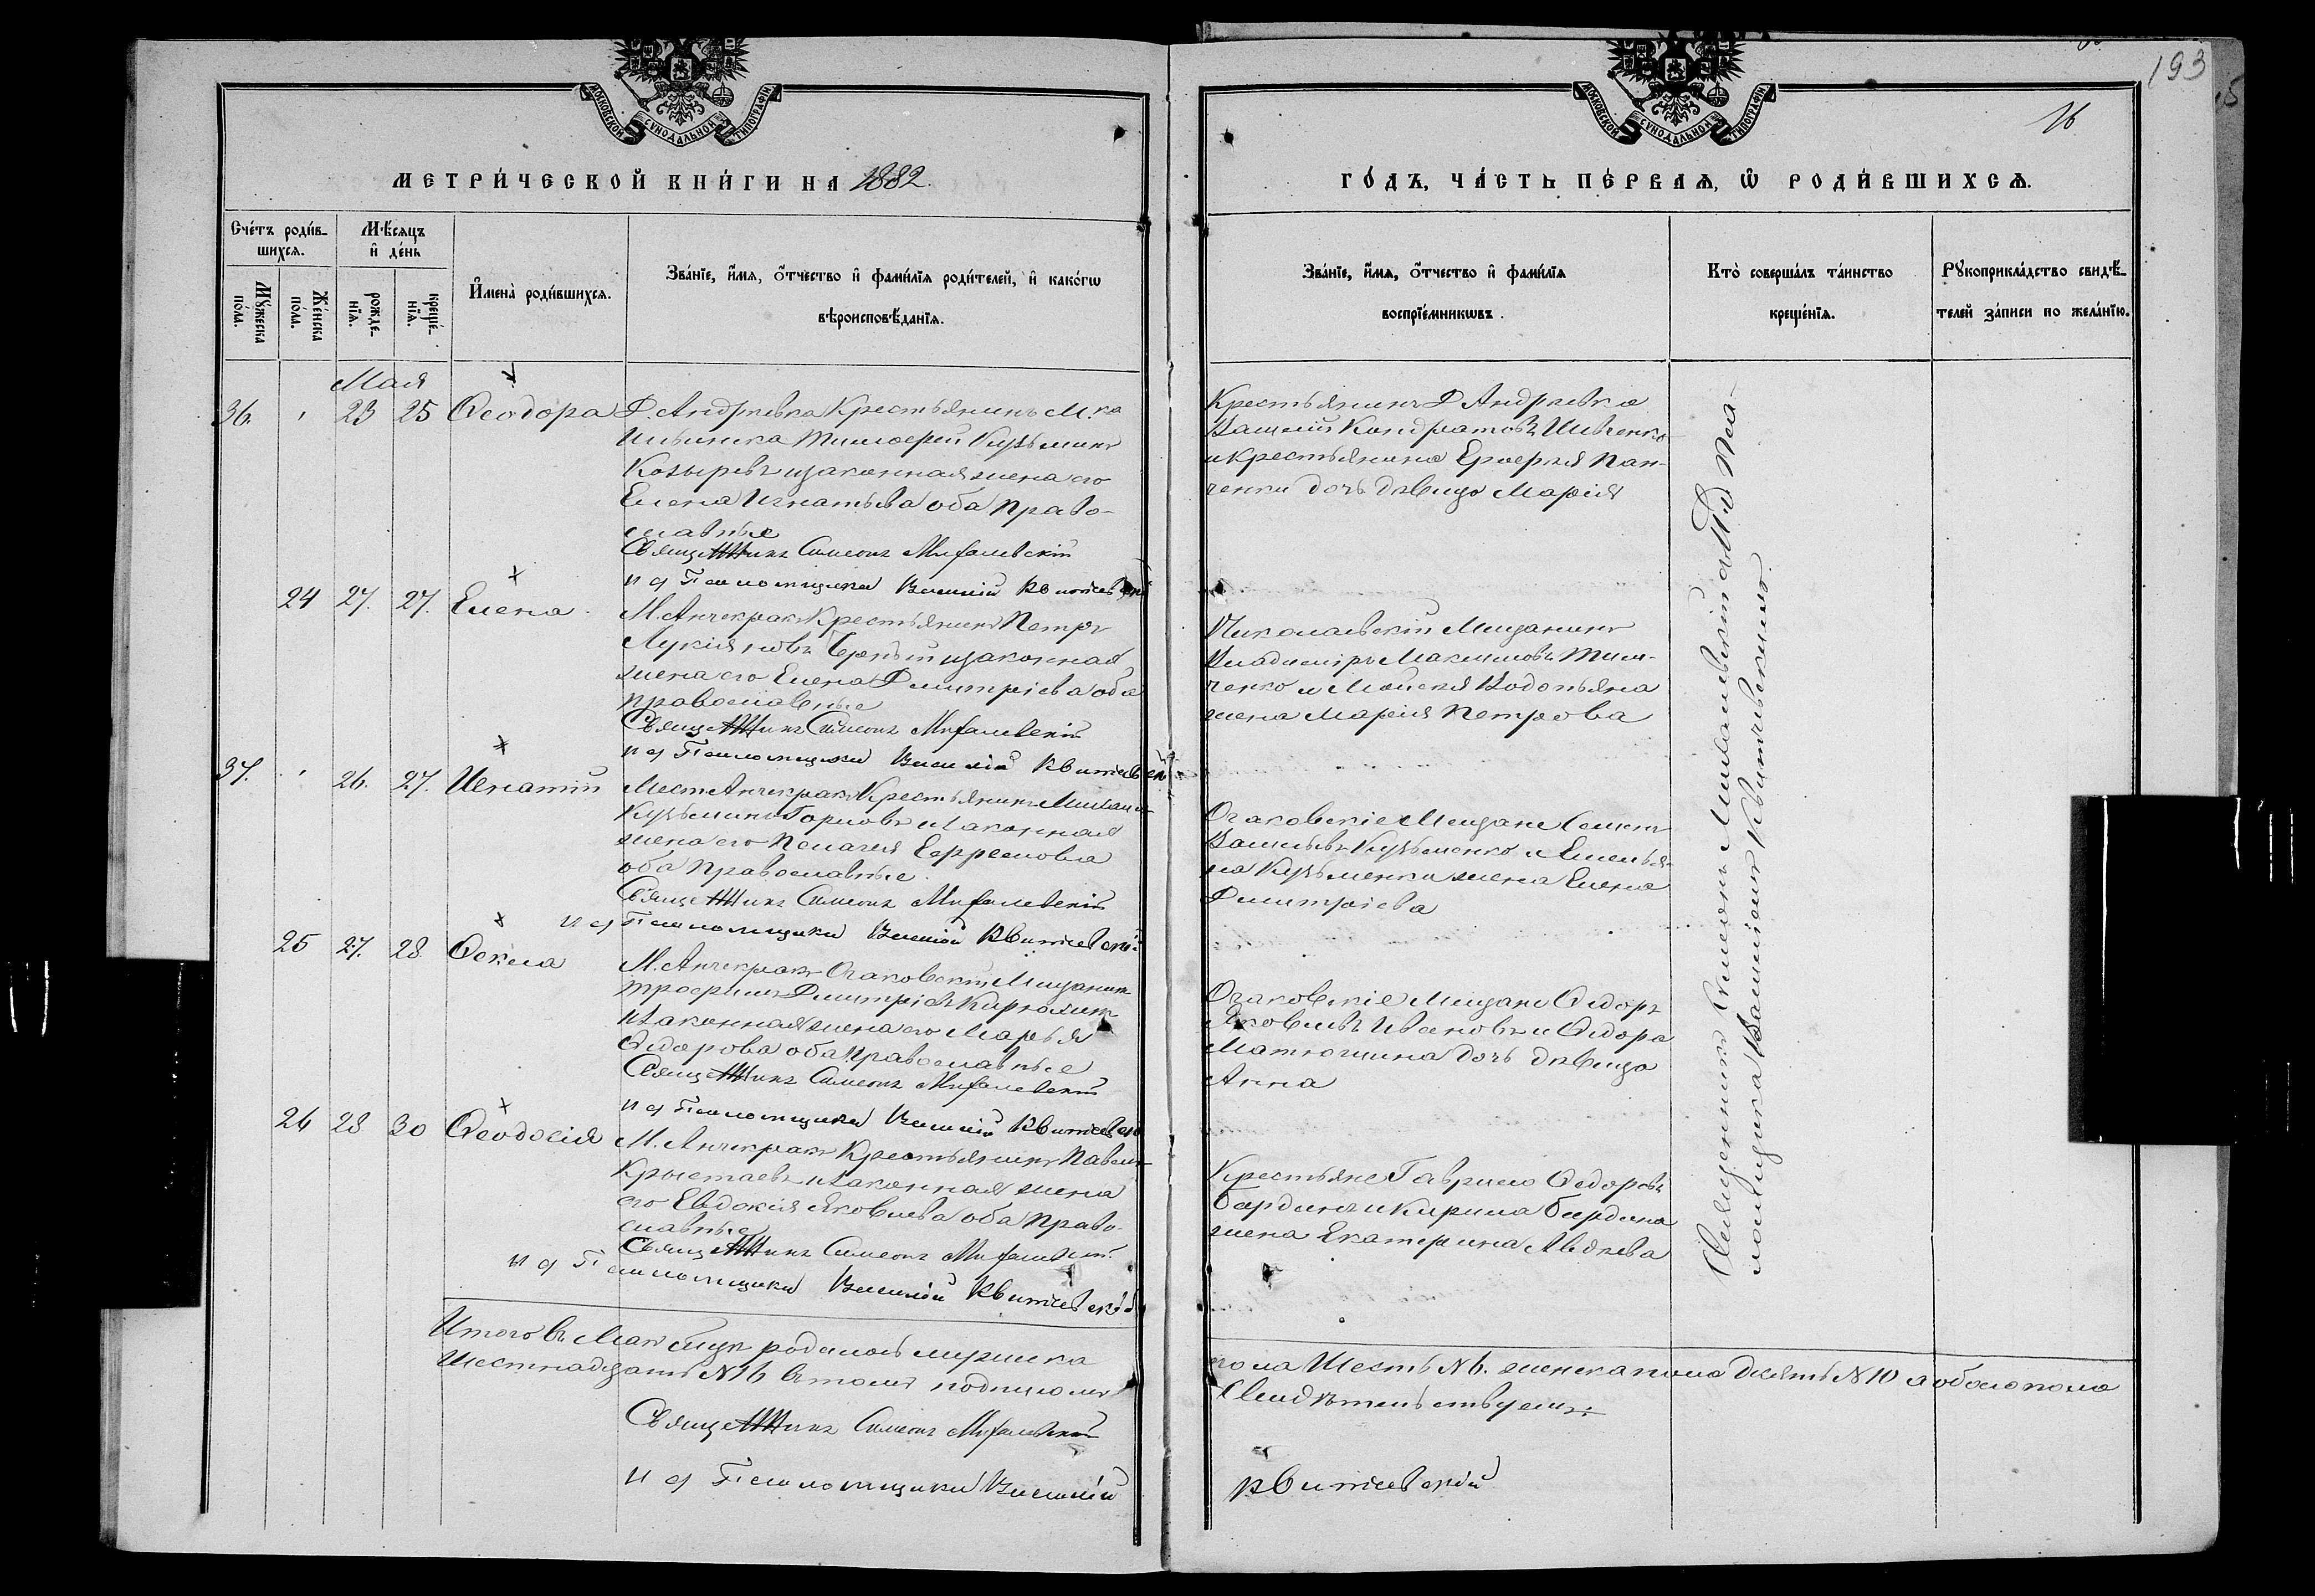 193
16
МОСКОВСКОЙ СѴНОДАЛЬНОЙ ТИПОГРАФІИ
МЕТРИ́ЧЕСКОЙ КНИ́ГИ НА 1882.
Сче́тъ роди́в-
шихсѧ.
Мѣ́сѧцъ
и҆ де́нь
Мꙋ́жеска
по́ла.
Же́нска
по́ла.
рожде-
нїѧ.
креще́-
нїѧ.
И҆мена̀ роди́вшихсѧ.
Зва́нїе, и҆́мѧ, ѻ҆́тчество и҆ фами́лїѧ роди́телей, и҆ како́гѡ
вѣроисповѣ́данїѧ.
Мая
36. 23 25 Ѳеодора Д. Андреевка Крестьянинъ М.ка
Тимоѳей Кузьминъ
Козыревъ и законная жена его
Елена Игнатьева оба право-
славные
Священникъ Симеонъ Михалевскій
и д Псаломщика Василій Квитчевскій
24 27. 27. Елена М. Анчекракъ Крестьянинъ Петръ
Лукіяновъ Черный и законная
жена его Елена Димитріева оба
православные
Священникъ Симеонъ Михалевскій
и д Псаломщика Василій Квитчевскій
37. 26. 27. Игнатій Мест Анчекракъ Крестьянинъ Михаилъ
Кузьминъ Горловъ и законная
жена его Пелагея Ефремова
оба православные.
Священникъ Симеонъ Михалевскій
и д Псаломщика Василій Квитчевскій
25 27. 28 Ѳекла М. Анчекракъ Очаковскій Мещанинъ
Трофимъ Димитріевъ
и законная жена его Марья
Ѳедорова оба православные
Священникъ Симеонъ Михалевскій
и д Псаломщика Василій Квитчевскій
26 28 30 Ѳеодосія М. Анчекракъ Крестьянинъ Павелъ
и законная жена
его Евдокія Яковлева оба право-
славные
Священникъ Симеонъ Михалевскій
и д Псаломщика Василій Квитчевскій
Итого въ Маѣ мѣсяцѣ родилось мужеска
Шестнадцать №16 въ томъ подписомъ
Священникъ Симеонъ Михалевскій
и д Псаломщика Василій
МОСКОВСКОЙ СѴНОДАЛЬНОЙ ТИПОГРАФІИ
ГО́ДЪ, ЧА́СТЬ ПЕ́РВАѦ, Ѡ҆ РОДИ́ВШИХСѦ.
Зва́нїе, и҆́мѧ, ѻ҆́тчество и҆ фами́лїѧ
воспрїе́мникѡвъ.
Кто̀ соверша́лъ та́инство
креще́нїѧ.
Рꙋкоприкла́дство свидѣ́-
телей за́писи по жела́нїю.
Крестьянинъ Д Андреевки
Василій Кондратовъ Шевченко
и крестьянина Ерофея Пан-
ченки дочь дѣвица Марія
Николаевскій Мещанинъ
Владиміръ Максимовъ Тим-
ченко и Моисея Водопьяна
жена Марія Петрова
Очаковскіе Мещане Семенъ
Васильевъ Кузьменко и Емелья-
на Кузьменки жена Елена
Димитріева
Очаковскіе Мещане Ѳедоръ
Яковлевъ Ивановъ и Ѳедора
Матюшина дочь дѣвица
Анна
Крестьяне Гаврило Ѳедоровъ
Бардинъ и Кирила Бардина
жена Екатерина Авдѣева
Священникъ Симеонъ Михалевскій съ И.д Пса-
ломщика Василіемъ Квитчевскимъ.
пола Шесть №6. женска пола десять №10 а обоего пола
Свидѣтельствуемъ:
Квитчевскій